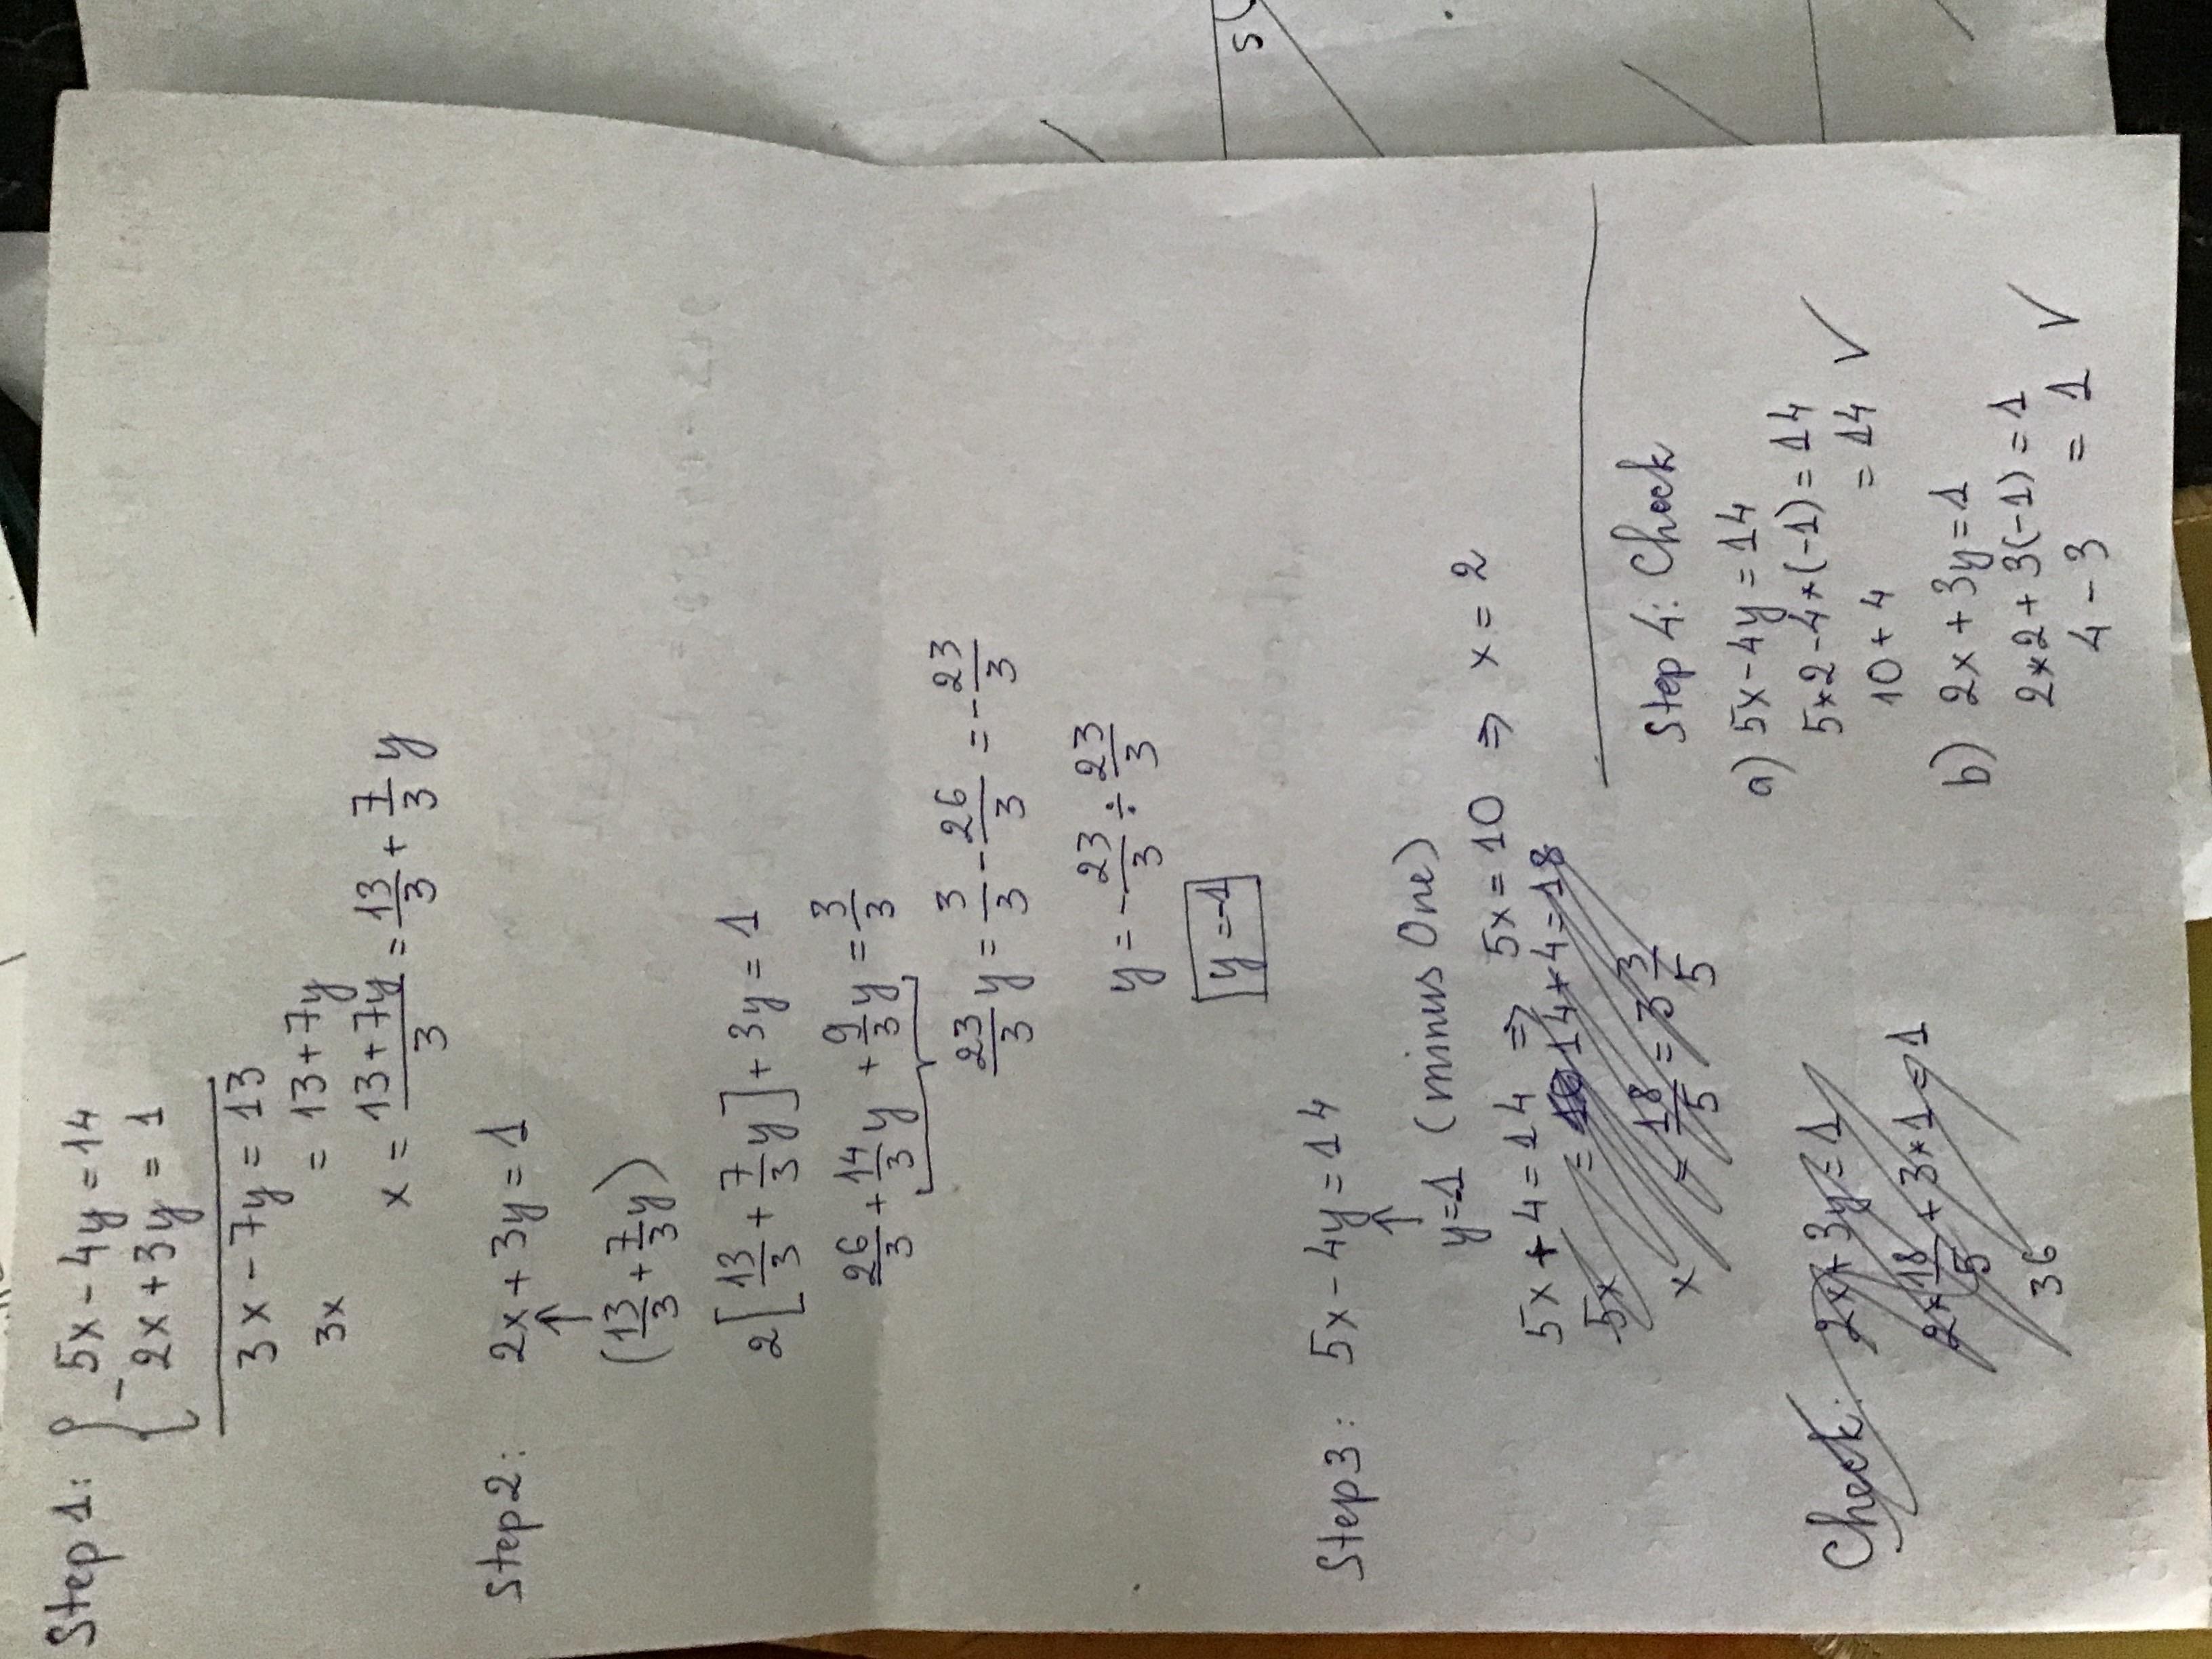 Step 1: { 5x - 4y = 14
- 2x + 3y = 1
3x - 7y = 13
3x = 13 + 7y
x = (13 + 7y)/3 = 13/3 + 7/3 y
Step 2: 2x + 3y = 1
↑
(13/3 + 7/3 y)
2[13/3 + 7/3 y] + 3y = 1
26/3 + 14/3 y + 9/3 y = 3/3
23/3 y = 3/3 - 26/3 = -23/3
y = -23/3 ÷ 23/3
y = -1
Step 3: 5x - 4y = 14
↑
y = -1 (minus One)
5x + 4 = 14 ⇒ 5x = 10 ⇒ x = 2
5x = 14 + 4 = 18
x = 18/5 = 3 3/5
Check: 2x + 3y = 1
2*18/5 + 3*1 = 1
36
Step 4: Check
a) 5x - 4y = 14
5*2 - 4*(-1) = 14
10 + 4 = 14 V
b) 2x + 3y = 1
2*2 + 3(-1) = 1
4 - 3 = 1 V
5